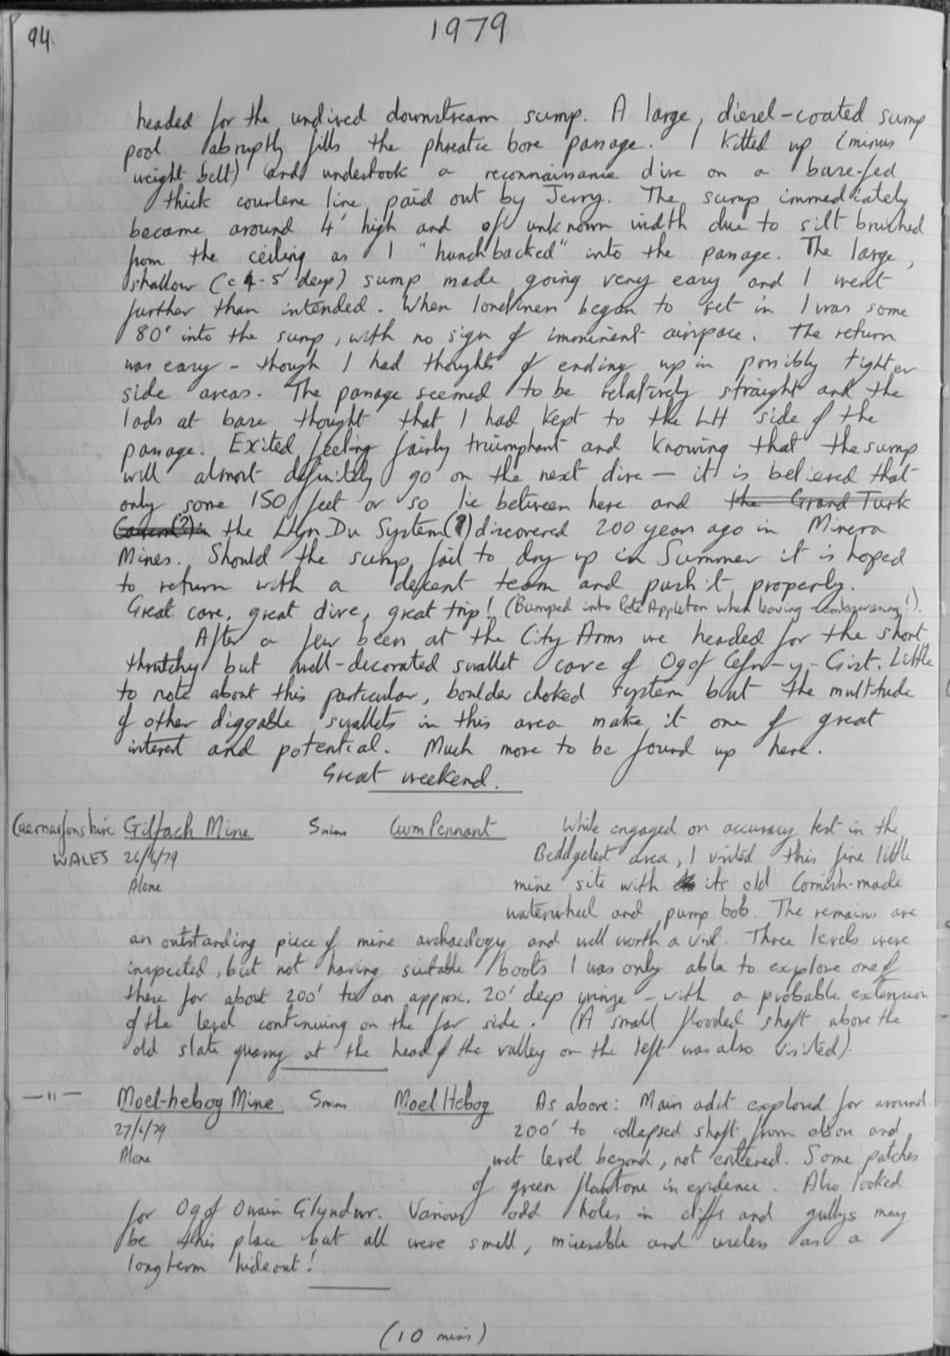 94
1979
headed for the undived downstream sump. A large, diesel-coated sump
pool abruptly fills the phreatic bore passage. I kitted up (minus
weight belt) and undertook a reconnaissance dive on a base-fed
thick courlene line, paid out by Jerry. The sump immediately
became around 4' high and of unknown width due to silt brushed
from the ceiling as I "hunchbacked" into the passage. The large,
shallow (c 4-5' deep) sump made going very easy and I went
further than intended. When loneliness began to set in I was some
80' into the sump, with no sign of imminent airspace. The return
was easy - though I had thoughts of ending up in possibly tighter
side areas. The passage seemed to be relatively straight and the
lads at base thought that I had kept to the LH side of the
passage. Exited feeling fairly triumphant and knowing that the sump
will almost definitely go on the next dive - it is believed that
only some 150 feet or so lie between here and the Grand Turk
Cavern(?) in the Llyn Du System(?) discovered 200 years ago in Minera
Mines. Should the sump fail to dry up in Summer it is hoped
to return with a decent team and push it properly.
Great cave, great dive, great trip! (Bumped into Pete Appleton when leaving - !).
After a few beers at the City Arms we headed for the short
thrutchy but well-decorated swallet cave of Ogof Cefn-y-Gist. Little
to note about this particular, boulder choked system but the multitude
of other diggable swallets in this area make it one of great
interest and potential. Much more to be found up here.
Great weekend.
Caernarfonshire Gilfach Mine 5mins Cwm Pennant While engaged on accuracy test in the
WALES 26/6/79 Beddgelert area, I visited this fine little
Alone mine site with its old Cornish-made
waterwheel and pump bob. The remains are
an outstanding piece of mine archaeology and well worth a visit. Three levels were
inspected, but not having suitable boots I was only able to explore one of
these for about 200' to an approx. 20' deep winze - with a probable extension
of the level continuing on the far side. (A small flooded shaft above the
old slate quarry at the head of the valley on the left was also visited).
-"- Moel-hebog Mine 5mins Moel Hebog As above: Main adit explored for around
27/6/79 200' to collapsed shaft from above and
Alone wet level beyond, not entered. Some patches
of green flowstone in evidence. Also looked
for Ogof Owain Glyndwr. Various odd holes in cliffs and gullys may
be this place but all were small, miserable and useless as a
longterm hideout!
(10 mins)